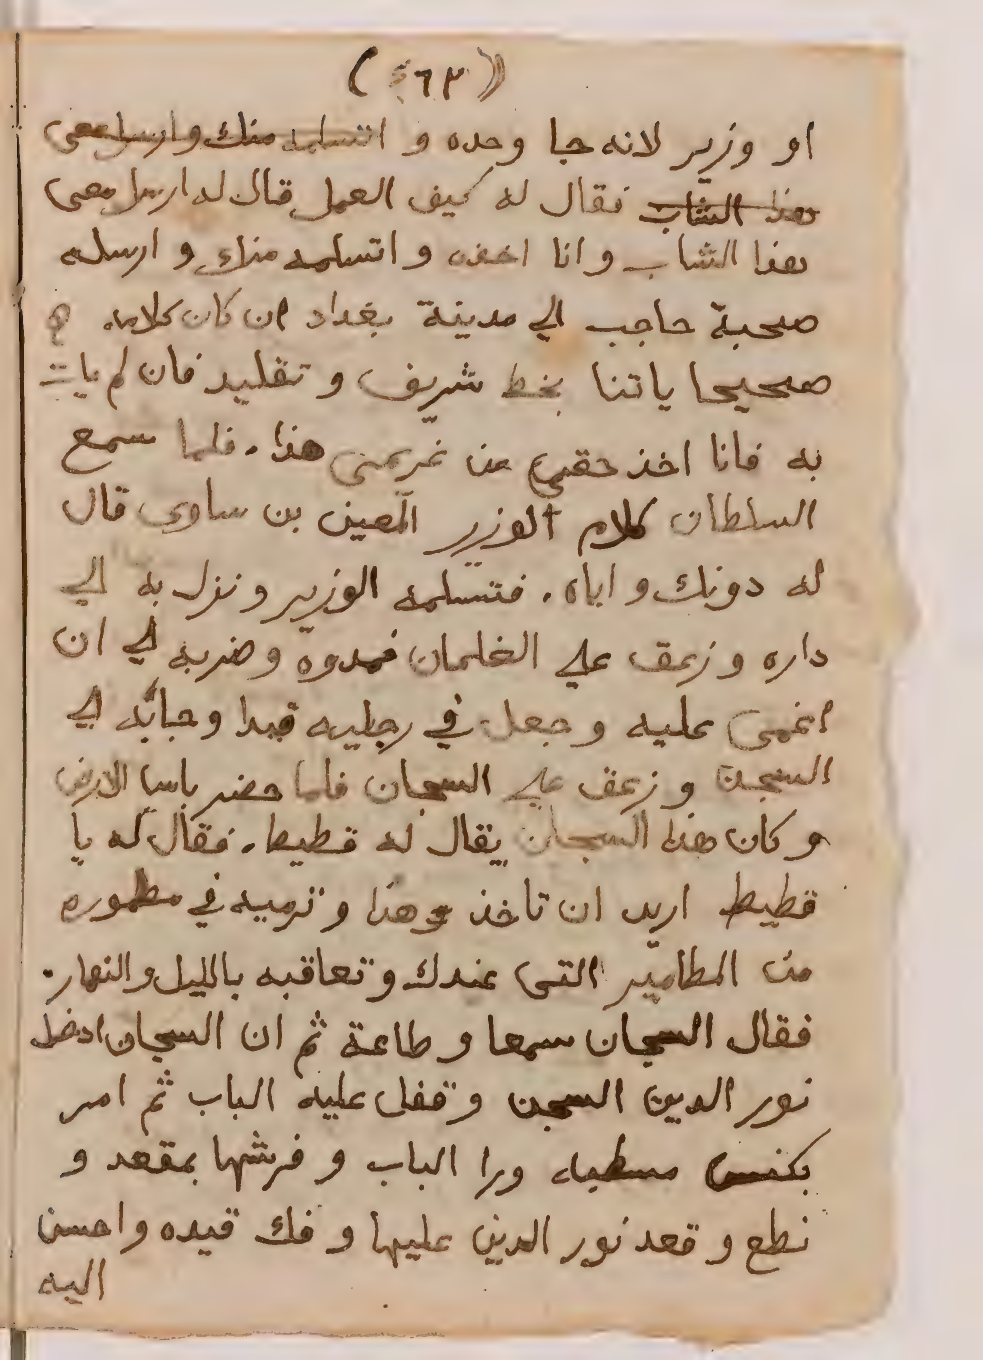 او وزير لانه جا وحده و اتسلمه منك وارسل معى
هذا الشاب فقال له كيف العمل قال له ارسل معى
هذا الشاب وانا اخذه و اتسلمه منك و ارسله
صحبة حاجب الي مدينة بغداد ان كان كلامه
صحيحا ياتنا بخط شريف و تقليد فان لم يات
به فانا اخذ حقي من غريمى هذا . فلما سمع
السلطان كلام الوزير المعين بن ساوى قال
له دونك و اياه . فتسلمه الوزير و نزل به الي
داره و زعق علي الغلمان فمدوه و ضربه الي ان
اغمى عليه و جعل في رجليه قيدا و جابه الي
السجن و زعق علي السجان فلما حضر باس الارض
و كان هذا السجان يقال له قطيط . فقال له يا
قطيط اريد ان تأخذ هذا و ترميه في مطموره
من المطامير التى عندك و تعاقبه بالليل و النهار .
فقال السجان سمعا و طاعة ثم ان السجان ادخل
نور الدين السجن و قفل عليه الباب ثم امر
بكنس مسطبه ورا الباب و فرشها بمقعد و
نطع و قعد نور الدين عليها و فك قيده و احسن
اليه